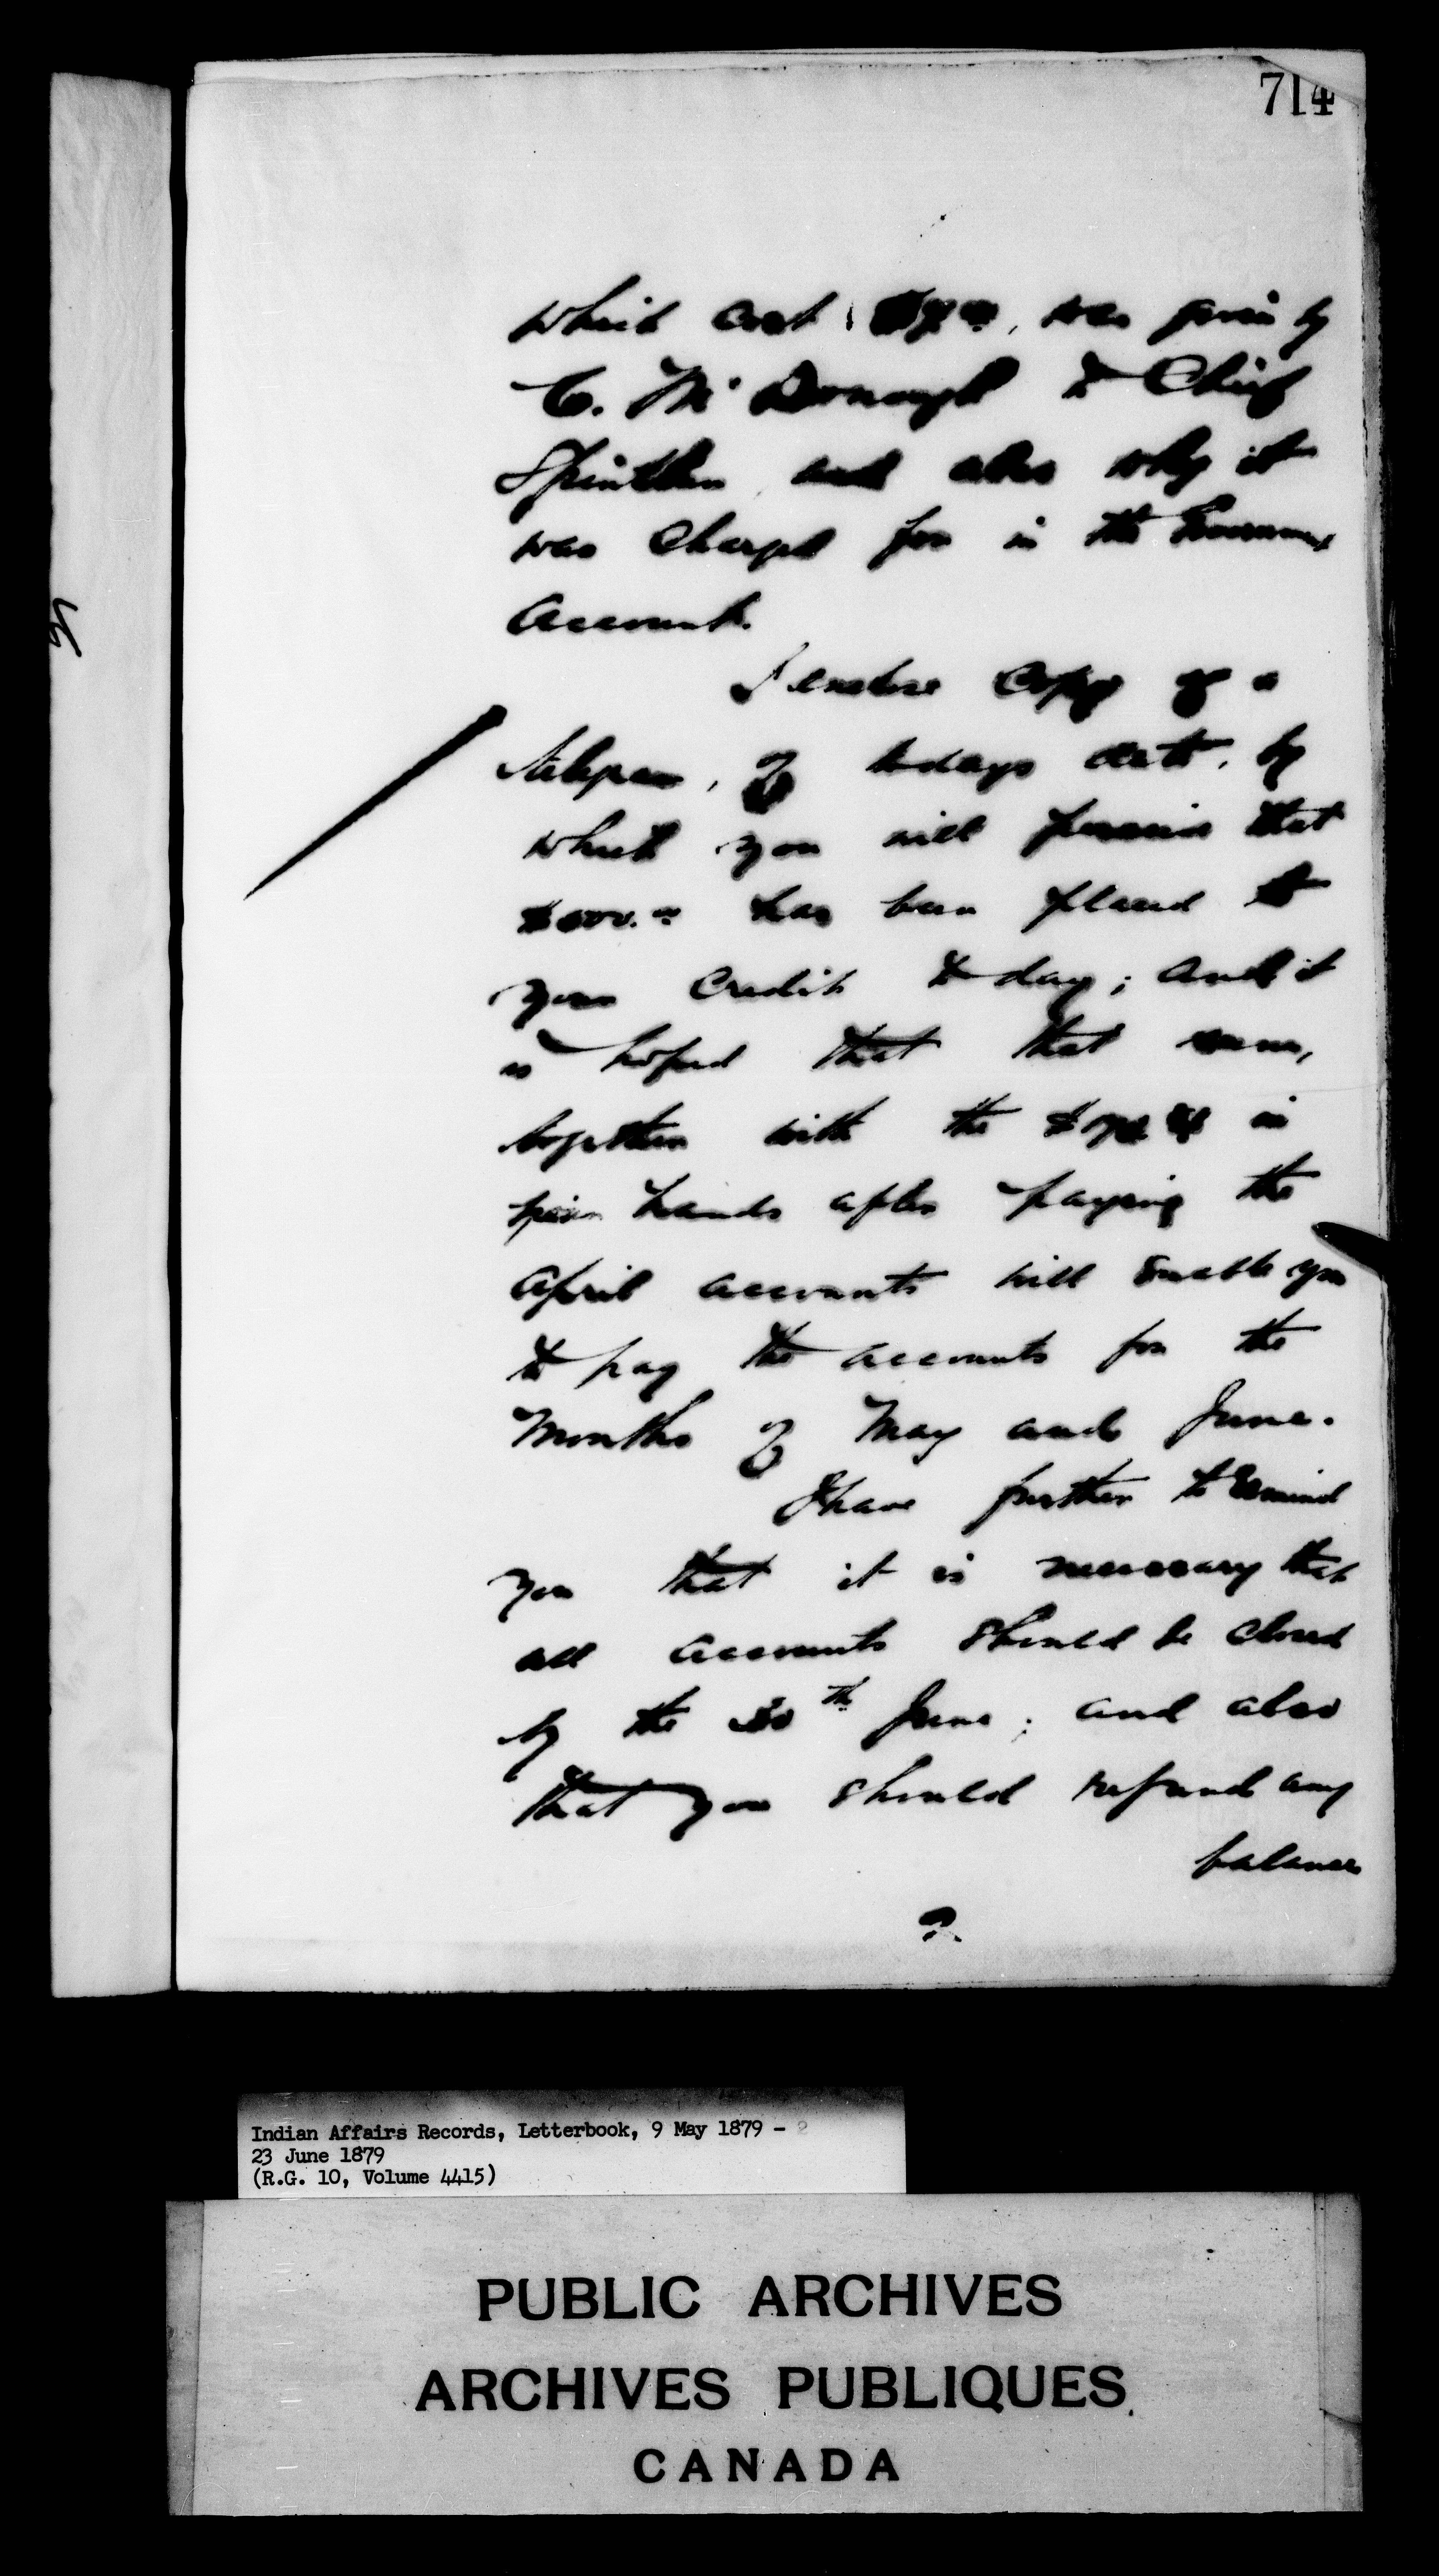 714
which cost was given by
C. McDonough to Chief
and also why it
was charged for in the Government
Account.
I enclose copy of a
Telegram, of todays date, by
which you will perceive that
has been placed to
your credit to day; and it
is hoped that that sum,
together with the in
hands after paying the
April accounts will enable you
to pay the accounts for the
months of May and June.
I have further to remind
you that it is necessary that
all accounts should be closed
by the 30th June; and also
that you should refund any
balance
Indian Affairs Records, Letterbook, 9 May 1879 -
23 June 1879
(R.G. 10, Volume 4415)
PUBLIC ARCHIVES
ARCHIVES PUBLIQUES
CANADA